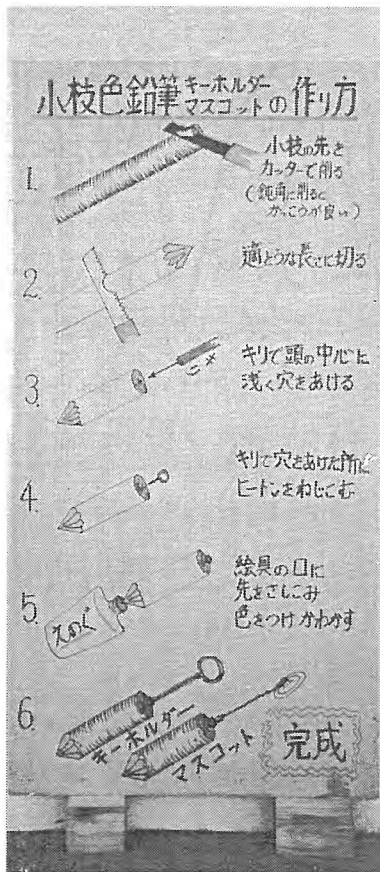 小枝色鉛筆キーホルダーマスコットの作り方
1.
小枝の先を
カッターで削る
(鈍角に削ると
かっこうが良い)
2.
適とうな長さに切る
3.
キリで頭の中心に
浅く穴をあける
4.
キリで穴をあけた所に
ヒートンをねじこむ
5.
えのぐ
絵具の口に
先をさしこみ
色をつけかわかす
6.
キーホルダー
マスコット
完成